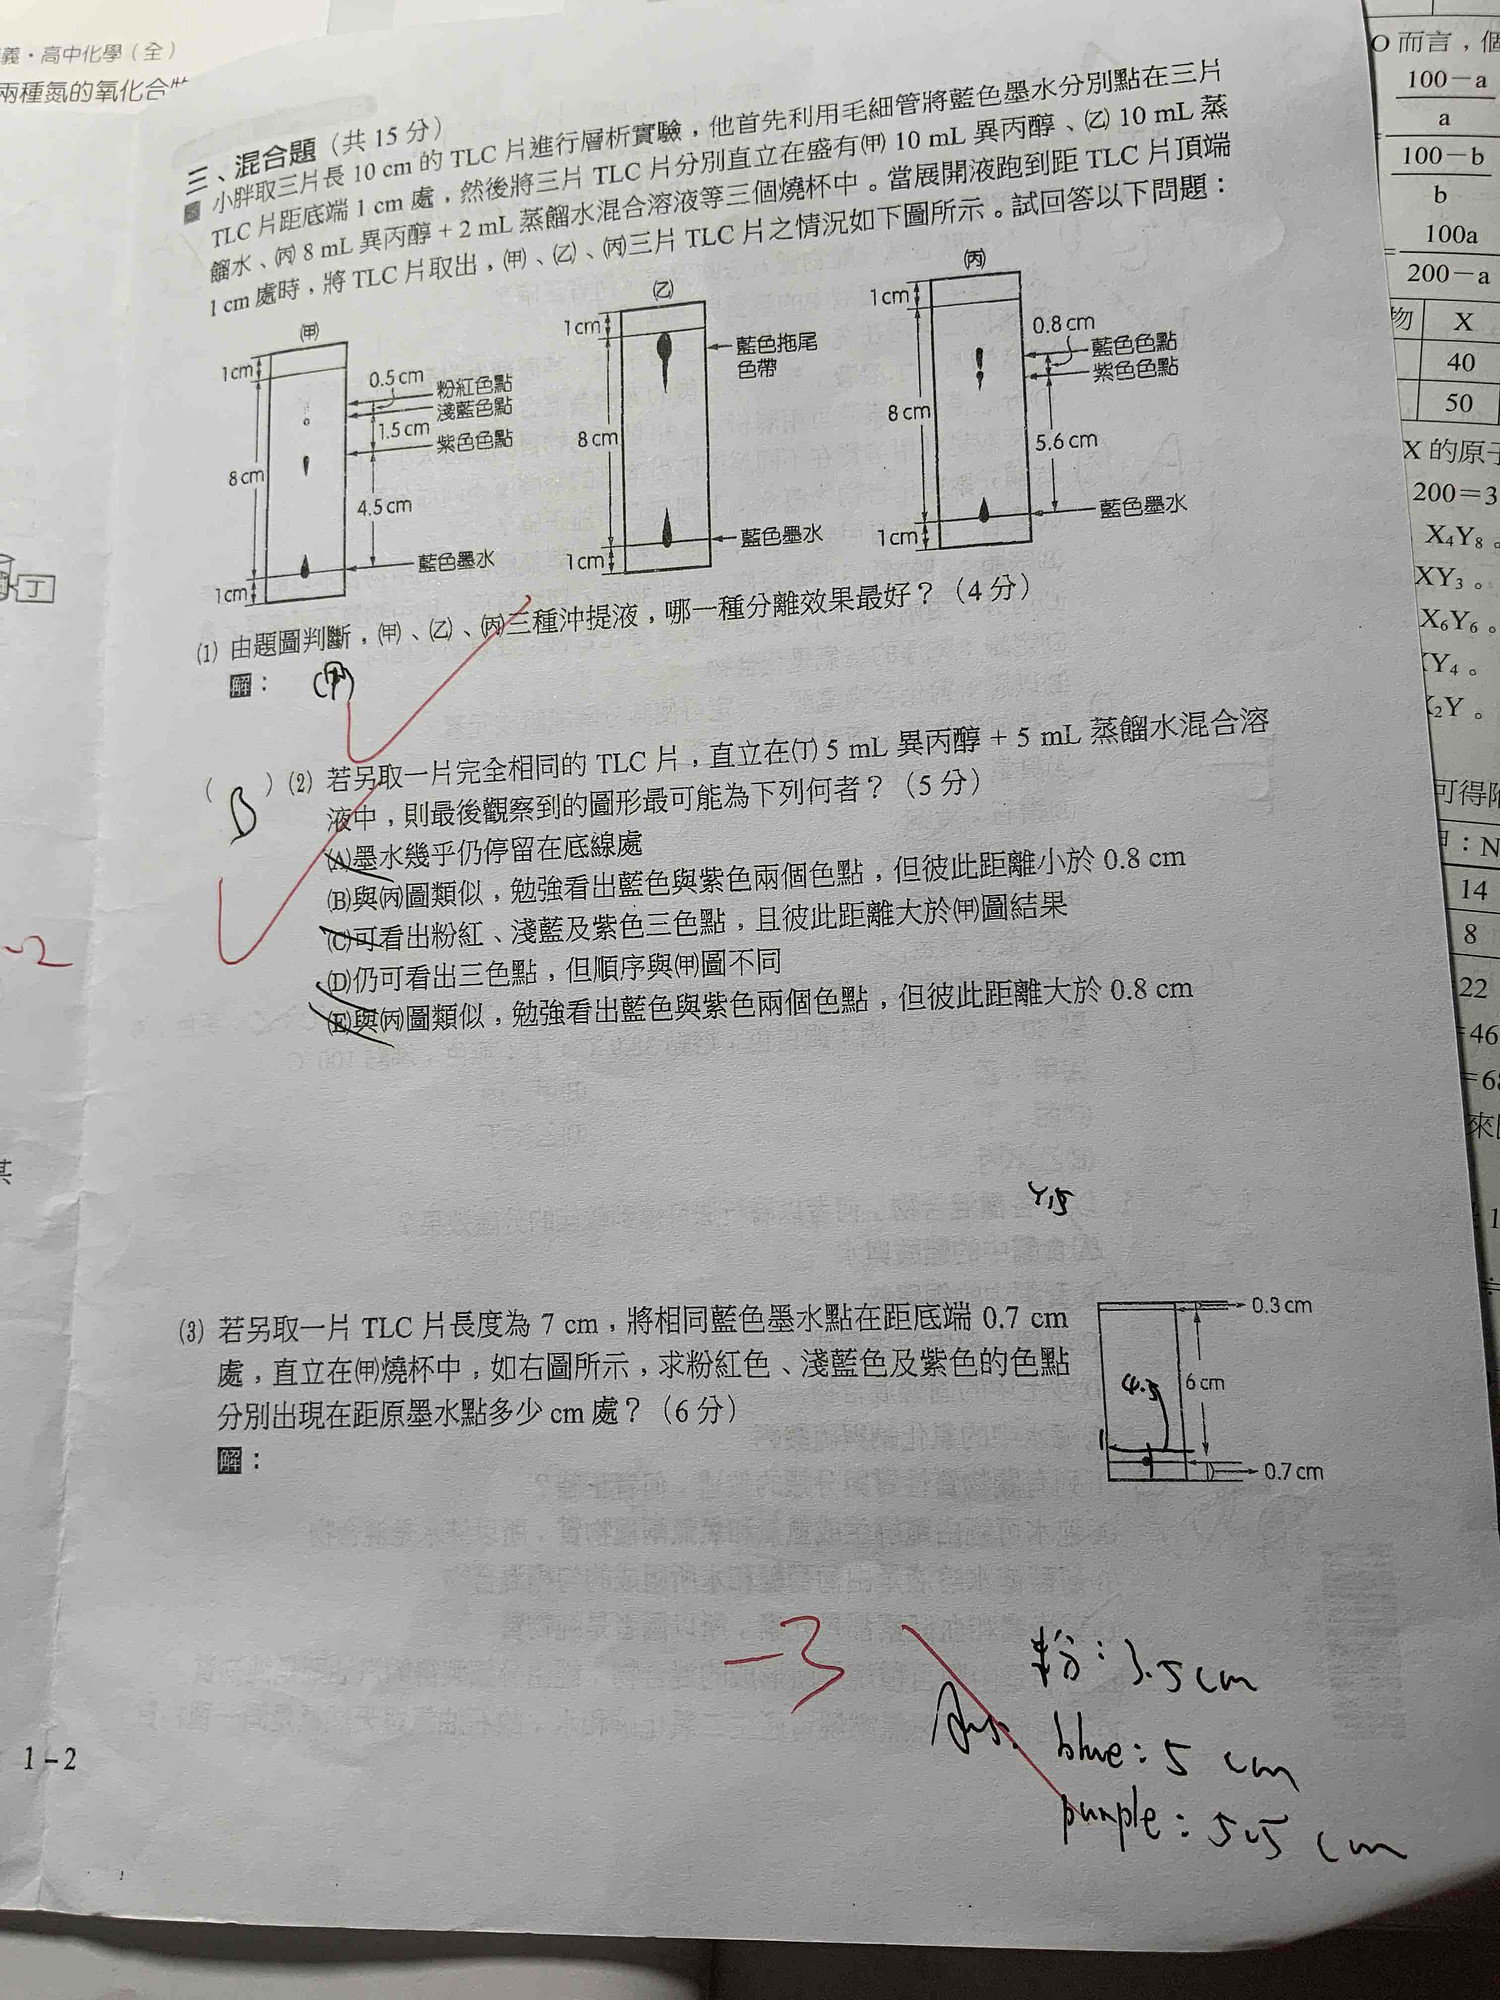 義・高中化學（全）
兩種氮的氧化合物
三、混合題（共 15 分）
小胖取三片長 10 cm 的 TLC 片進行層析實驗，他首先利用毛細管將藍色墨水分別點在三片
TLC 片距底端 1 cm 處，然後將三片 TLC 片分別直立在盛有㈙ 10 mL 異丙醇、㈚ 10 mL 蒸
餾水、㈛ 8 mL 異丙醇 + 2 mL 蒸餾水混合溶液等三個燒杯中。當展開液跑到距 TLC 片頂端
1 cm 處時，將 TLC 片取出，(甲)、(乙)、(丙)三片 TLC 片之情況如下圖所示。試回答以下問題：
(甲)
1cm
0.5cm
粉紅色點
淺藍色點
1.5cm
紫色色點
8cm
4.5cm
藍色墨水
1cm
(乙)
1cm
藍色拖尾
色帶
8cm
藍色墨水
1cm
(丙)
1cm
0.8cm
藍色色點
紫色色點
8cm
5.6cm
藍色墨水
1cm
(1) 由題圖判斷，(甲)、(乙)、(丙)三種沖提液，哪一種分離效果最好？（4 分）
解：
(甲)
（ B ）(2) 若另取一片完全相同的 TLC 片，直立在(丁) 5 mL 異丙醇 + 5 mL 蒸餾水混合溶
液中，則最後觀察到的圖形最可能為下列何者？（5 分）
(A)墨水幾乎仍停留在底線處
(B)與(丙)圖類似，勉強看出藍色與紫色兩個色點，但彼此距離小於 0.8 cm
(C)可看出粉紅、淺藍及紫色三色點，且彼此距離大於(甲)圖結果
(D)仍可看出三色點，但順序與(甲)圖不同
(E)與(丙)圖類似，勉強看出藍色與紫色兩個色點，但彼此距離大於 0.8 cm
(3) 若另取一片 TLC 片長度為 7 cm，將相同藍色墨水點在距底端 0.7 cm
處，直立在(甲)燒杯中，如右圖所示，求粉紅色、淺藍色及紫色的色點
分別出現在距原墨水點多少 cm 處？（6 分）
解：
0.3cm
4.5
6cm
0.7cm
-3
粉：3.5cm
Ans. blue：5 cm
purple：5.5 cm
1-2
-2
丁
其
O 而言，個
100－a
a
100－b
b
100a
200－a
物 X
40
50
X 的原子
200＝3
X₄Y₈。
XY₃。
X₆Y₆。
XY₄。
X₂Y。
可得附
：N
14
8
22
＝46
＝68